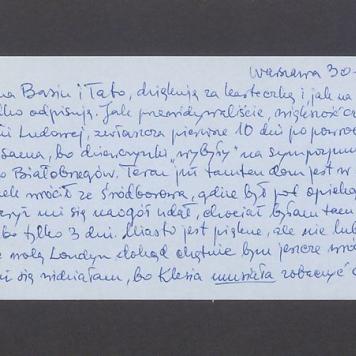 Warszawa 30
na Basiu i Tato, dziękuję za karteczkę i jak na
ko odpisuję. Jak przewidywaliście, większość cz
ii Ludowej, zwłaszcza pierwsze 10 dni po powro
sama, bo dziewczynki „wybyły” na sympozjum
o Białobrzegów. Teraz już tamten dom jest w
ek wrócił ze Śródborowa, gdzie był pod opieką
mi się naogół udał, chociaż byłam tam
bo tylko 3 dni. Miasto jest piękne, ale nie lub
wolę Londyn dokąd chętnie bym jeszcze
się widziałam, bo Klesia musiała zobaczyć